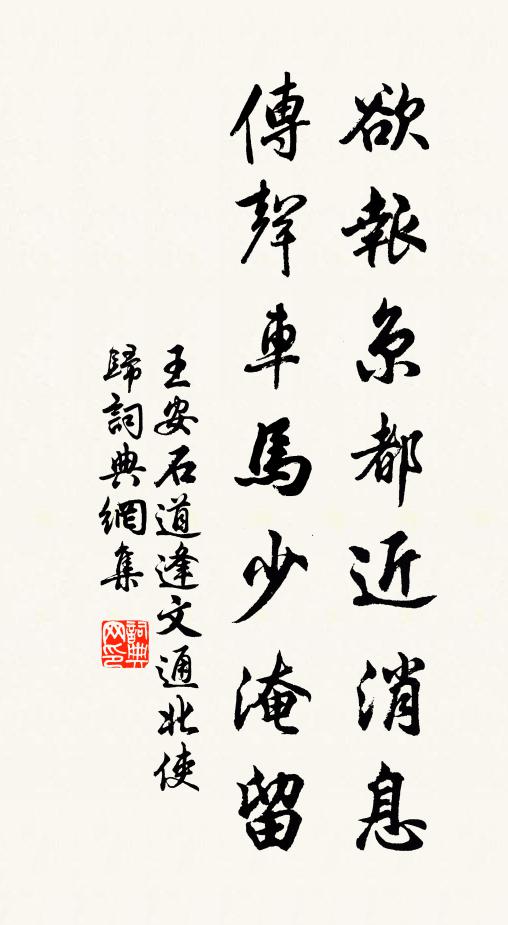 欲報京都近消息
傳聲車馬少淹留
王安石道逢文通北使
歸詞典網集
詞典
网印